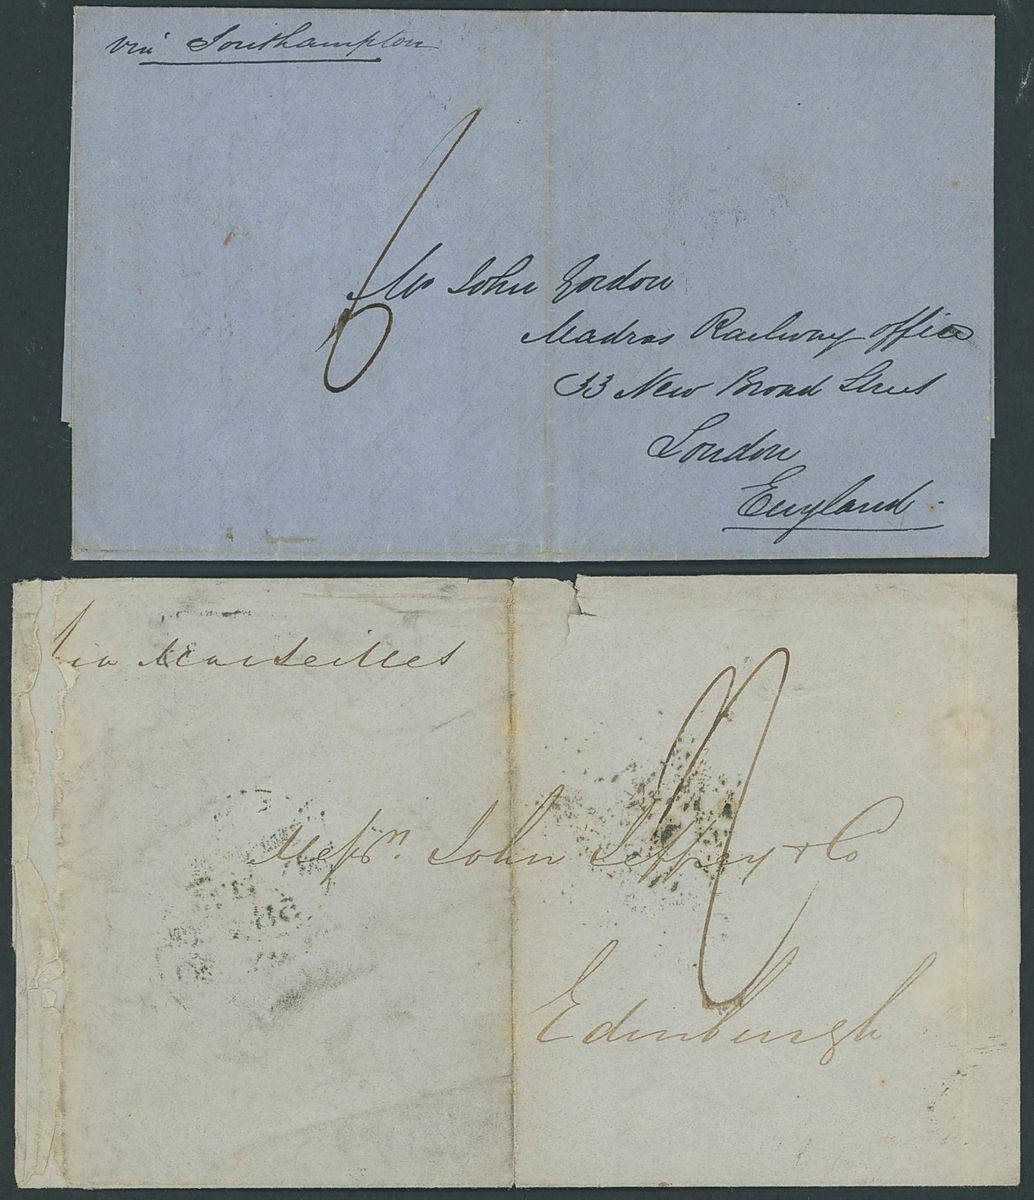 via Southampton
6
Mr John Gordon
Madras Railway office
33 New Broad Street
London
England
Via Marseilles
Messrs. John Jeffrey & Co
Edinburgh